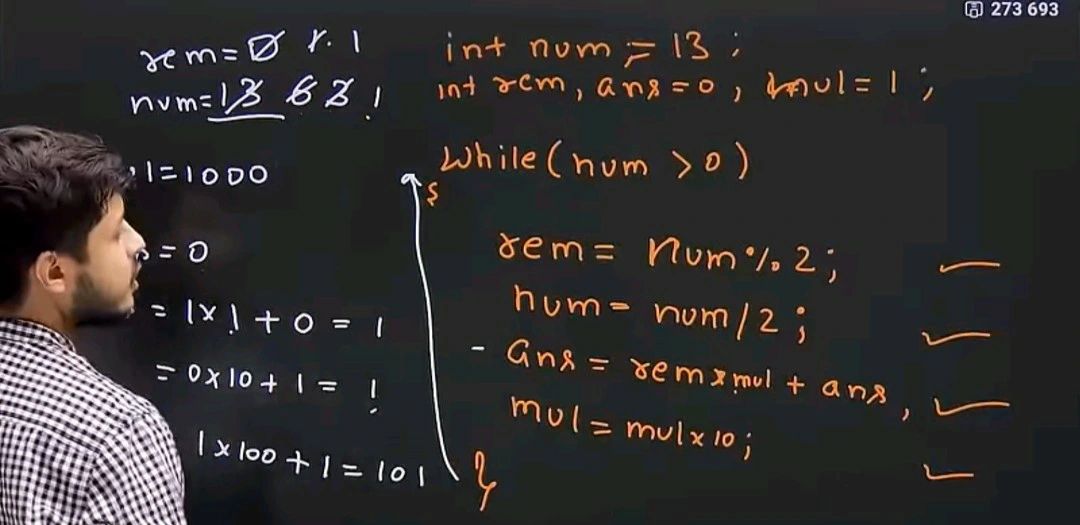 273 693
rem = 0 1. 1
num = 13 6 3 1
int num = 13 ;
int rem, ans = 0 , mul = 1 ;
While ( num > 0 )
{
l = 1000
= 0
= 1 x 1 + 0 = 1
= 0 x 10 + 1 = 1
1 x 100 + 1 = 101
rem = num % 2 ;
num = num / 2 ;
- ans = rem x mul + ans ,
mul = mul x 10 ;
}